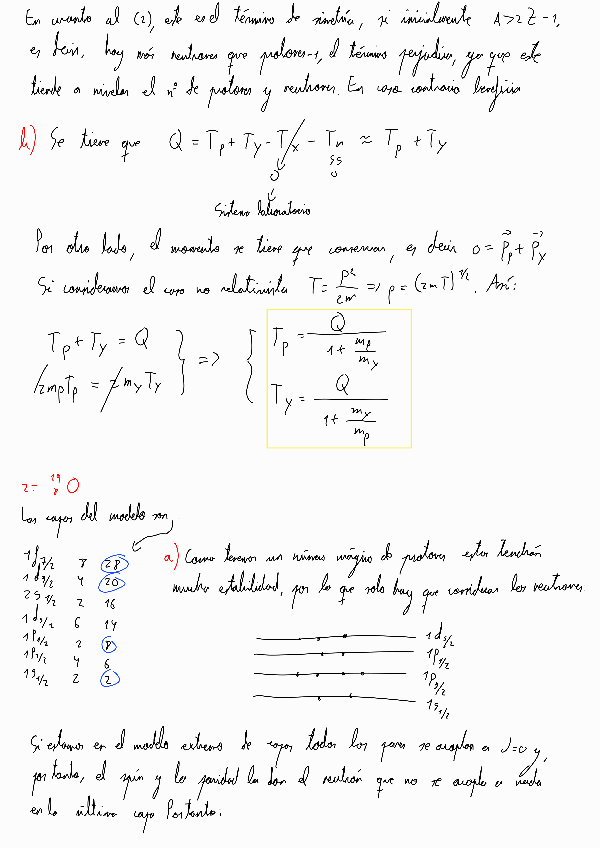 En cuanto al (2), este es el término de simetría, si inicialmente A>2Z-1,
es decir, hay más neutrones que protones-1, el término perjudica, ya que este
tiende a nivelar el nº de protones y neutrones. En caso contrario beneficia
b) Se tiene que Q = T_p + T_Y - T_X - T_n ≈ T_p + T_Y
0 ≈ 0
Sistema laboratorio
Por otro lado, el momento se tiene que conservar, es decir 0 = p⃗_p + p⃗_Y
Si consideramos el caso no relativista T = p²/2m => p = (2mT)^1/2. Así:
T_p + T_Y = Q
2m_pT_p = 2m_YT_Y
=>
T_p = Q / (1 + m_p/m_Y)
T_Y = Q / (1 + m_Y/m_p)
2- ¹⁹₈O
Las capas del modelo son
1d_3/2 4 20
2s_1/2 2 16
1d_5/2 6 14
1p_1/2 2 8
1p_3/2 4 6
1s_1/2 2 2
a) Como tenemos un número mágico de protones estos tendrán
mucha estabilidad, por lo que solo hay que considerar los neutrones.
1d_5/2
1p_1/2
1p_3/2
1s_1/2
Si estamos en el modelo extremo de capas todos los pares se acoplan a J=0 y,
por tanto, el spín y la paridad la dan el neutrón que no se acopla a nada
en la última capa. Por tanto: